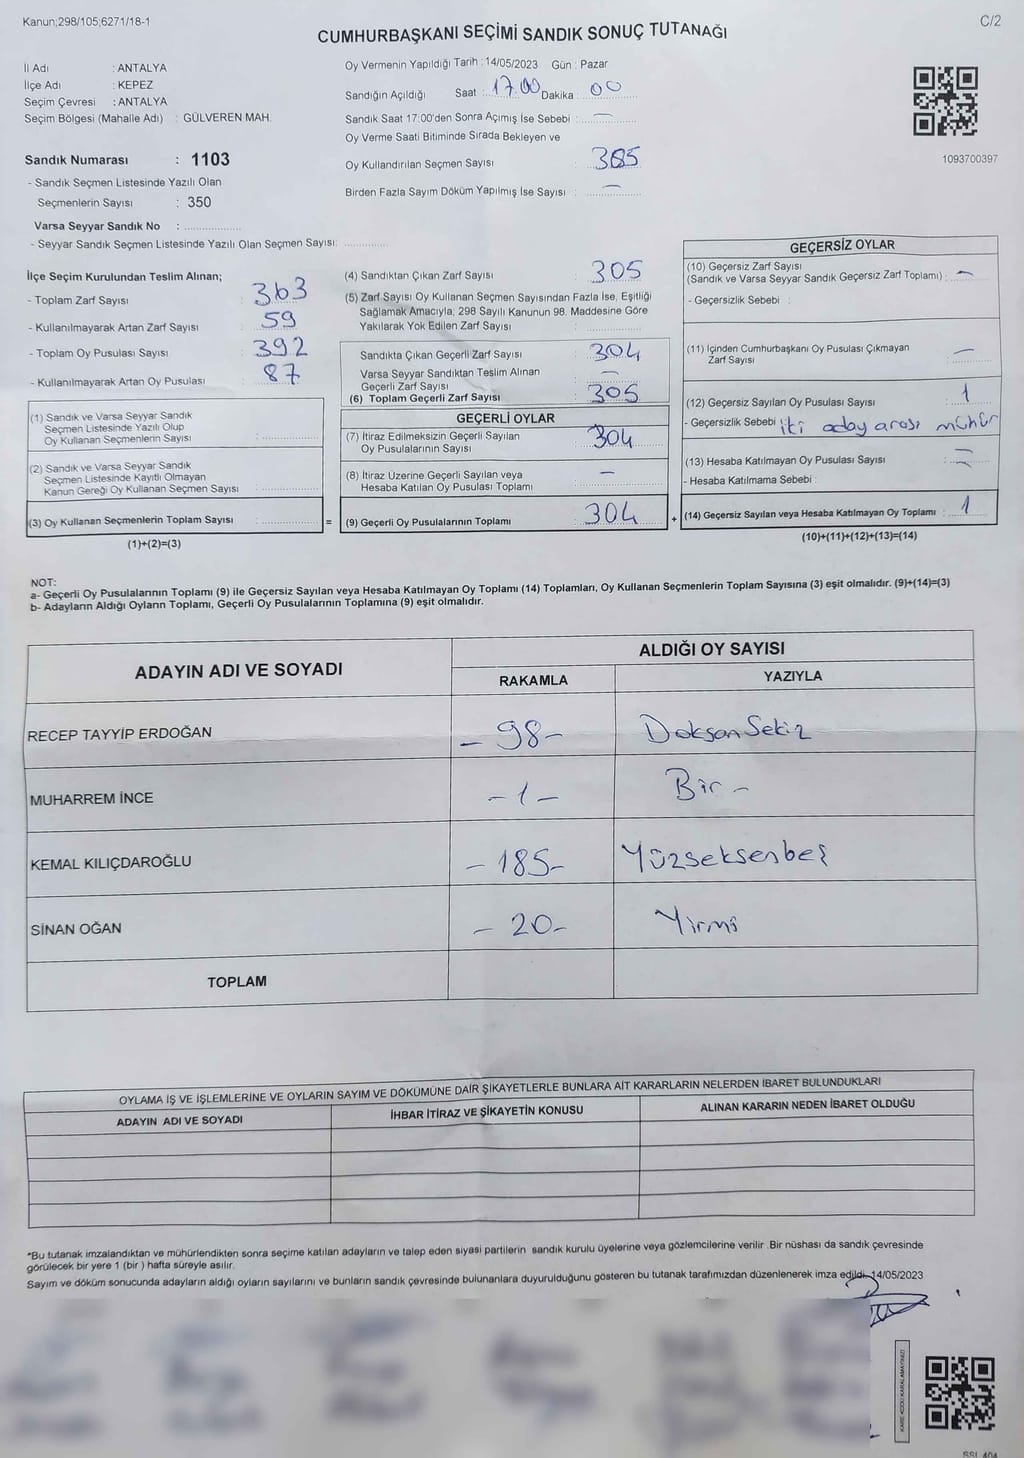 Kanun;298/105;6271/18-1
C/2
CUMHURBAŞKANI SEÇİMİ SANDIK SONUÇ TUTANAĞI
İl Adı : ANTALYA
İlçe Adı : KEPEZ
Seçim Çevresi : ANTALYA
Seçim Bölgesi (Mahalle Adı) : GÜLVEREN MAH.
Sandık Numarası : 1103
- Sandık Seçmen Listesinde Yazılı Olan
Seçmenlerin Sayısı : 350
Varsa Seyyar Sandık No :
- Seyyar Sandık Seçmen Listesinde Yazılı Olan Seçmen Sayısı:
Oy Vermenin Yapıldığı Tarih : 14/05/2023 Gün : Pazar
Sandığın Açıldığı Saat : 17.00 Dakika : 00
Sandık Saat 17:00'den Sonra Açımış İse Sebebi : —
Oy Verme Saati Bitiminde Sırada Bekleyen ve
Oy Kullandırılan Seçmen Sayısı : 305
Birden Fazla Sayım Döküm Yapılmış İse Sayısı : —
1093700397
İlçe Seçim Kurulundan Teslim Alınan;
- Toplam Zarf Sayısı : 363
- Kullanılmayarak Artan Zarf Sayısı : 59
- Toplam Oy Pusulası Sayısı : 392
- Kullanılmayarak Artan Oy Pusulası : 87
(1) Sandık ve Varsa Seyyar Sandık
Seçmen Listesinde Yazılı Olup
Oy Kullanan Seçmenlerin Sayısı :
(2) Sandık ve Varsa Seyyar Sandık
Seçmen Listesinde Kayıtlı Olmayan
Kanun Gereği Oy Kullanan Seçmen Sayısı :
(3) Oy Kullanan Seçmenlerin Toplam Sayısı :
(1)+(2)=(3)
(4) Sandıktan Çıkan Zarf Sayısı : 305
(5) Zarf Sayısı Oy Kullanan Seçmen Sayısından Fazla İse, Eşitliği
Sağlamak Amacıyla; 298 Sayılı Kanunun 98. Maddesine Göre
Yakılarak Yok Edilen Zarf Sayısı :
Sandıkta Çıkan Geçerli Zarf Sayısı : 304
Varsa Seyyar Sandıktan Teslim Alınan
Geçerli Zarf Sayısı : —
(6) Toplam Geçerli Zarf Sayısı : 305
GEÇERLİ OYLAR
(7) İtiraz Edilmeksizin Geçerli Sayılan
Oy Pusulalarının Sayısı : 304
(8) İtiraz Üzerine Geçerli Sayılan veya
Hesaba Katılan Oy Pusulası Toplamı : —
= (9) Geçerli Oy Pusulalarının Toplamı : 304
GEÇERSİZ OYLAR
(10) Geçersiz Zarf Sayısı
(Sandık ve Varsa Seyyar Sandık Geçersiz Zarf Toplamı) : —
- Geçersizlik Sebebi :
(11) İçinden Cumhurbaşkanı Oy Pusulası Çıkmayan
Zarf Sayısı : —
(12) Geçersiz Sayılan Oy Pusulası Sayısı : 1
- Geçersizlik Sebebi iki aday arası mühür
(13) Hesaba Katılmayan Oy Pusulası Sayısı : —
- Hesaba Katılmama Sebebi :
+ (14) Geçersiz Sayılan veya Hesaba Katılmayan Oy Toplamı : 1
(10)+(11)+(12)+(13)=(14)
NOT:
a- Geçerli Oy Pusulalarının Toplamı (9) ile Geçersiz Sayılan veya Hesaba Katılmayan Oy Toplamı (14) Toplamları, Oy Kullanan Seçmenlerin Toplam Sayısına (3) eşit olmalıdır. (9)+(14)=(3)
b- Adayların Aldığı Oyların Toplamı, Geçerli Oy Pusulalarının Toplamına (9) eşit olmalıdır.
ADAYIN ADI VE SOYADI
ALDIĞI OY SAYISI
RAKAMLA YAZIYLA
RECEP TAYYİP ERDOĞAN - 98 - Doksan Sekiz
MUHARREM İNCE - 1 - Bir -
KEMAL KILIÇDAROĞLU - 185 - Yüzseksenbeş
SİNAN OĞAN - 20 - Yirmi
TOPLAM
OYLAMA İŞ VE İŞLEMLERİNE VE OYLARIN SAYIM VE DÖKÜMÜNE DAİR ŞİKAYETLERLE BUNLARA AİT KARARLARIN NELERDEN İBARET BULUNDUKLARI
ADAYIN ADI VE SOYADI İHBAR İTİRAZ VE ŞİKAYETİN KONUSU ALINAN KARARIN NEDEN İBARET OLDUĞU
*Bu tutanak imzalandıktan ve mühürlendikten sonra seçime katılan adayların ve talep eden siyasi partilerin sandık kurulu üyelerine veya gözlemcilerine verilir. Bir nüshası da sandık çevresinde
görülecek bir yere 1 (bir ) hafta süreyle asılır.
Sayım ve döküm sonucunda adayların aldığı oyların sayılarını ve bunların sandık çevresinde bulunanlara duyurulduğunu gösteren bu tutanak tarafımızdan düzenlenerek imza edildi. 14/05/2023
KARE KODU KARALAMAYINIZ!